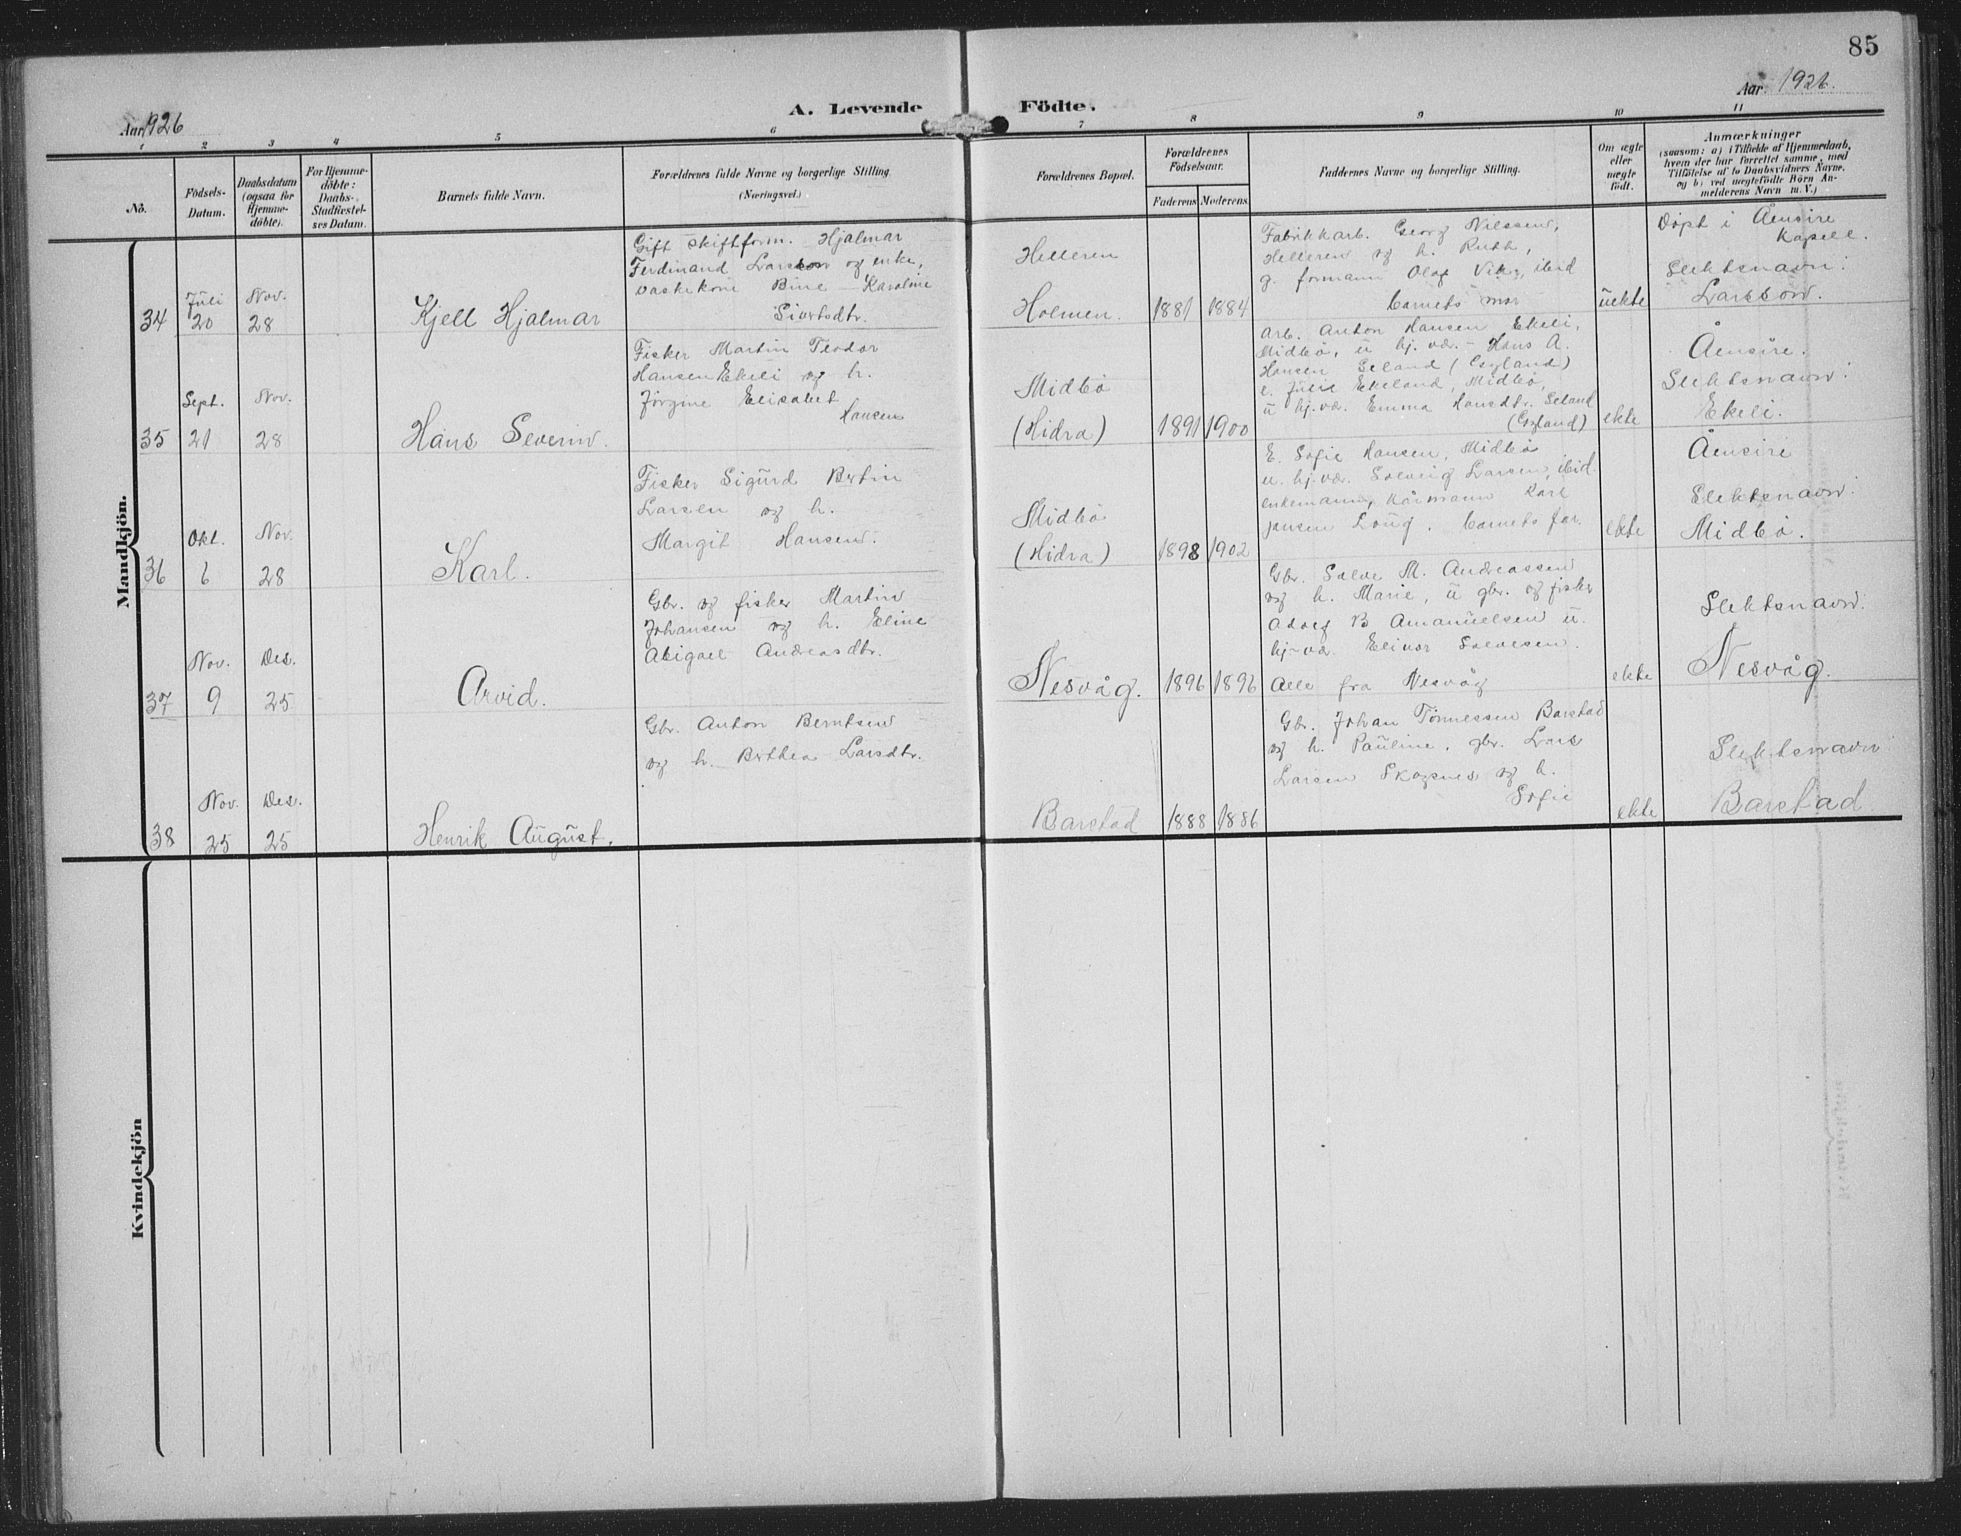 85
Aar 1926
A. Levende Födte.
Aar 1926.
1 2 3 4 5 6 7 8 9 10 11
No.
Födsels-
Datum.
Daabsdatum
(ogsaa for
Hjemme-
døbte).
For Hjemme-
døbte:
Daabs-
Stadfæstel-
ses Datum.
Barnets fulde Navn.
Forældrenes fulde Navne og borgerlige Stilling
(Næringsvei.)
Forældrenes Bopæl.
Forældrenes
Födselsaar.
Faderens Moderens
Faddernes Navne og borgerlige Stilling.
Om ægte
eller
uægte
født.
Anmærkninger
(saasom: a) i Tilfælde af Hjemmedaab,
hvem der har forrettet samme, med
Tilføielse af to Daabsvidners Navne.
og b) ved uegtefödte Börn An-
melderens Navn m. V.)
Mandkjön.
34
Juli
20
Nov.
28
Kjell Hjalmar
Gift skiftform. Hjalmar
Ferdinand Larsson og enke,
vaskekone Bine Karoline
Sivertsdtr.
Helleren
Holmen.
1881 1884
Fabrikkarb. Georg Nilssen,
Helleren og h. Ruth,
g. formann Olaf Vik, ibid
barnets mor
uekte
Döpt i Åensire
Kapell.
Slektsnavn:
Larsson.
35
Sept.
21
Nov.
28
Hans Severin.
Fisker Martin Teodor
Hansen Ekeli og h.
Jörgine Elisabet
Hansen
Midbö
(Hidra)
1891 1900
Arb. Anton Hansen Ekeli,
Midbö, u hj. vær. - Hans A.
Hansen Seland (Gyland)
e. Julie Ekeland, Midbö,
u hj. vær. Emma Hansdtr. Seland
(Gyland)
ekte
Åensire.
Slektsnavn:
Ekeli.
36
Okt.
6
Nov.
28
Karl.
Fisker Sigurd Bertin
Larsen og h.
Margit Hansen.
Midbö
(Hidra)
1898 1902
E. Sofie Hansen, Midbö
u. hj. vær. Solveig Larsen, ibid.
enkemann, kårmann Karl
Jansen Loug. barnets far.
ekte
Åensire
Slektsnavn:
Midbö.
37
Nov.
9
Des.
25
Arvid.
Gbr. og fisker Martin
Johansen og h. Eline
Abigael Andreasdtr.
Nesvåg.
1896 1896
Gbr. Salve M. Andreassen
og h. Marie, u gbr. og fisker
Adolf B Amanuelsen u.
hj-vær. Elinor Salvesen.
Alle fra Nesvåg
ekte
Slektsnavn:
Nesvåg.
38
Nov.
25
Des.
25
Henrik August.
Gbr. Anton Berntsen
og h. Berthea Larsdtr.
Barstad
1888 1886
Gbr. Johan Tönnessen Barstad
og h. Pauline, gbr. Lars
Larsen Skogsnes og h.
Sofie
ekte
Slektsnavn:
Barstad
Kvindekjön